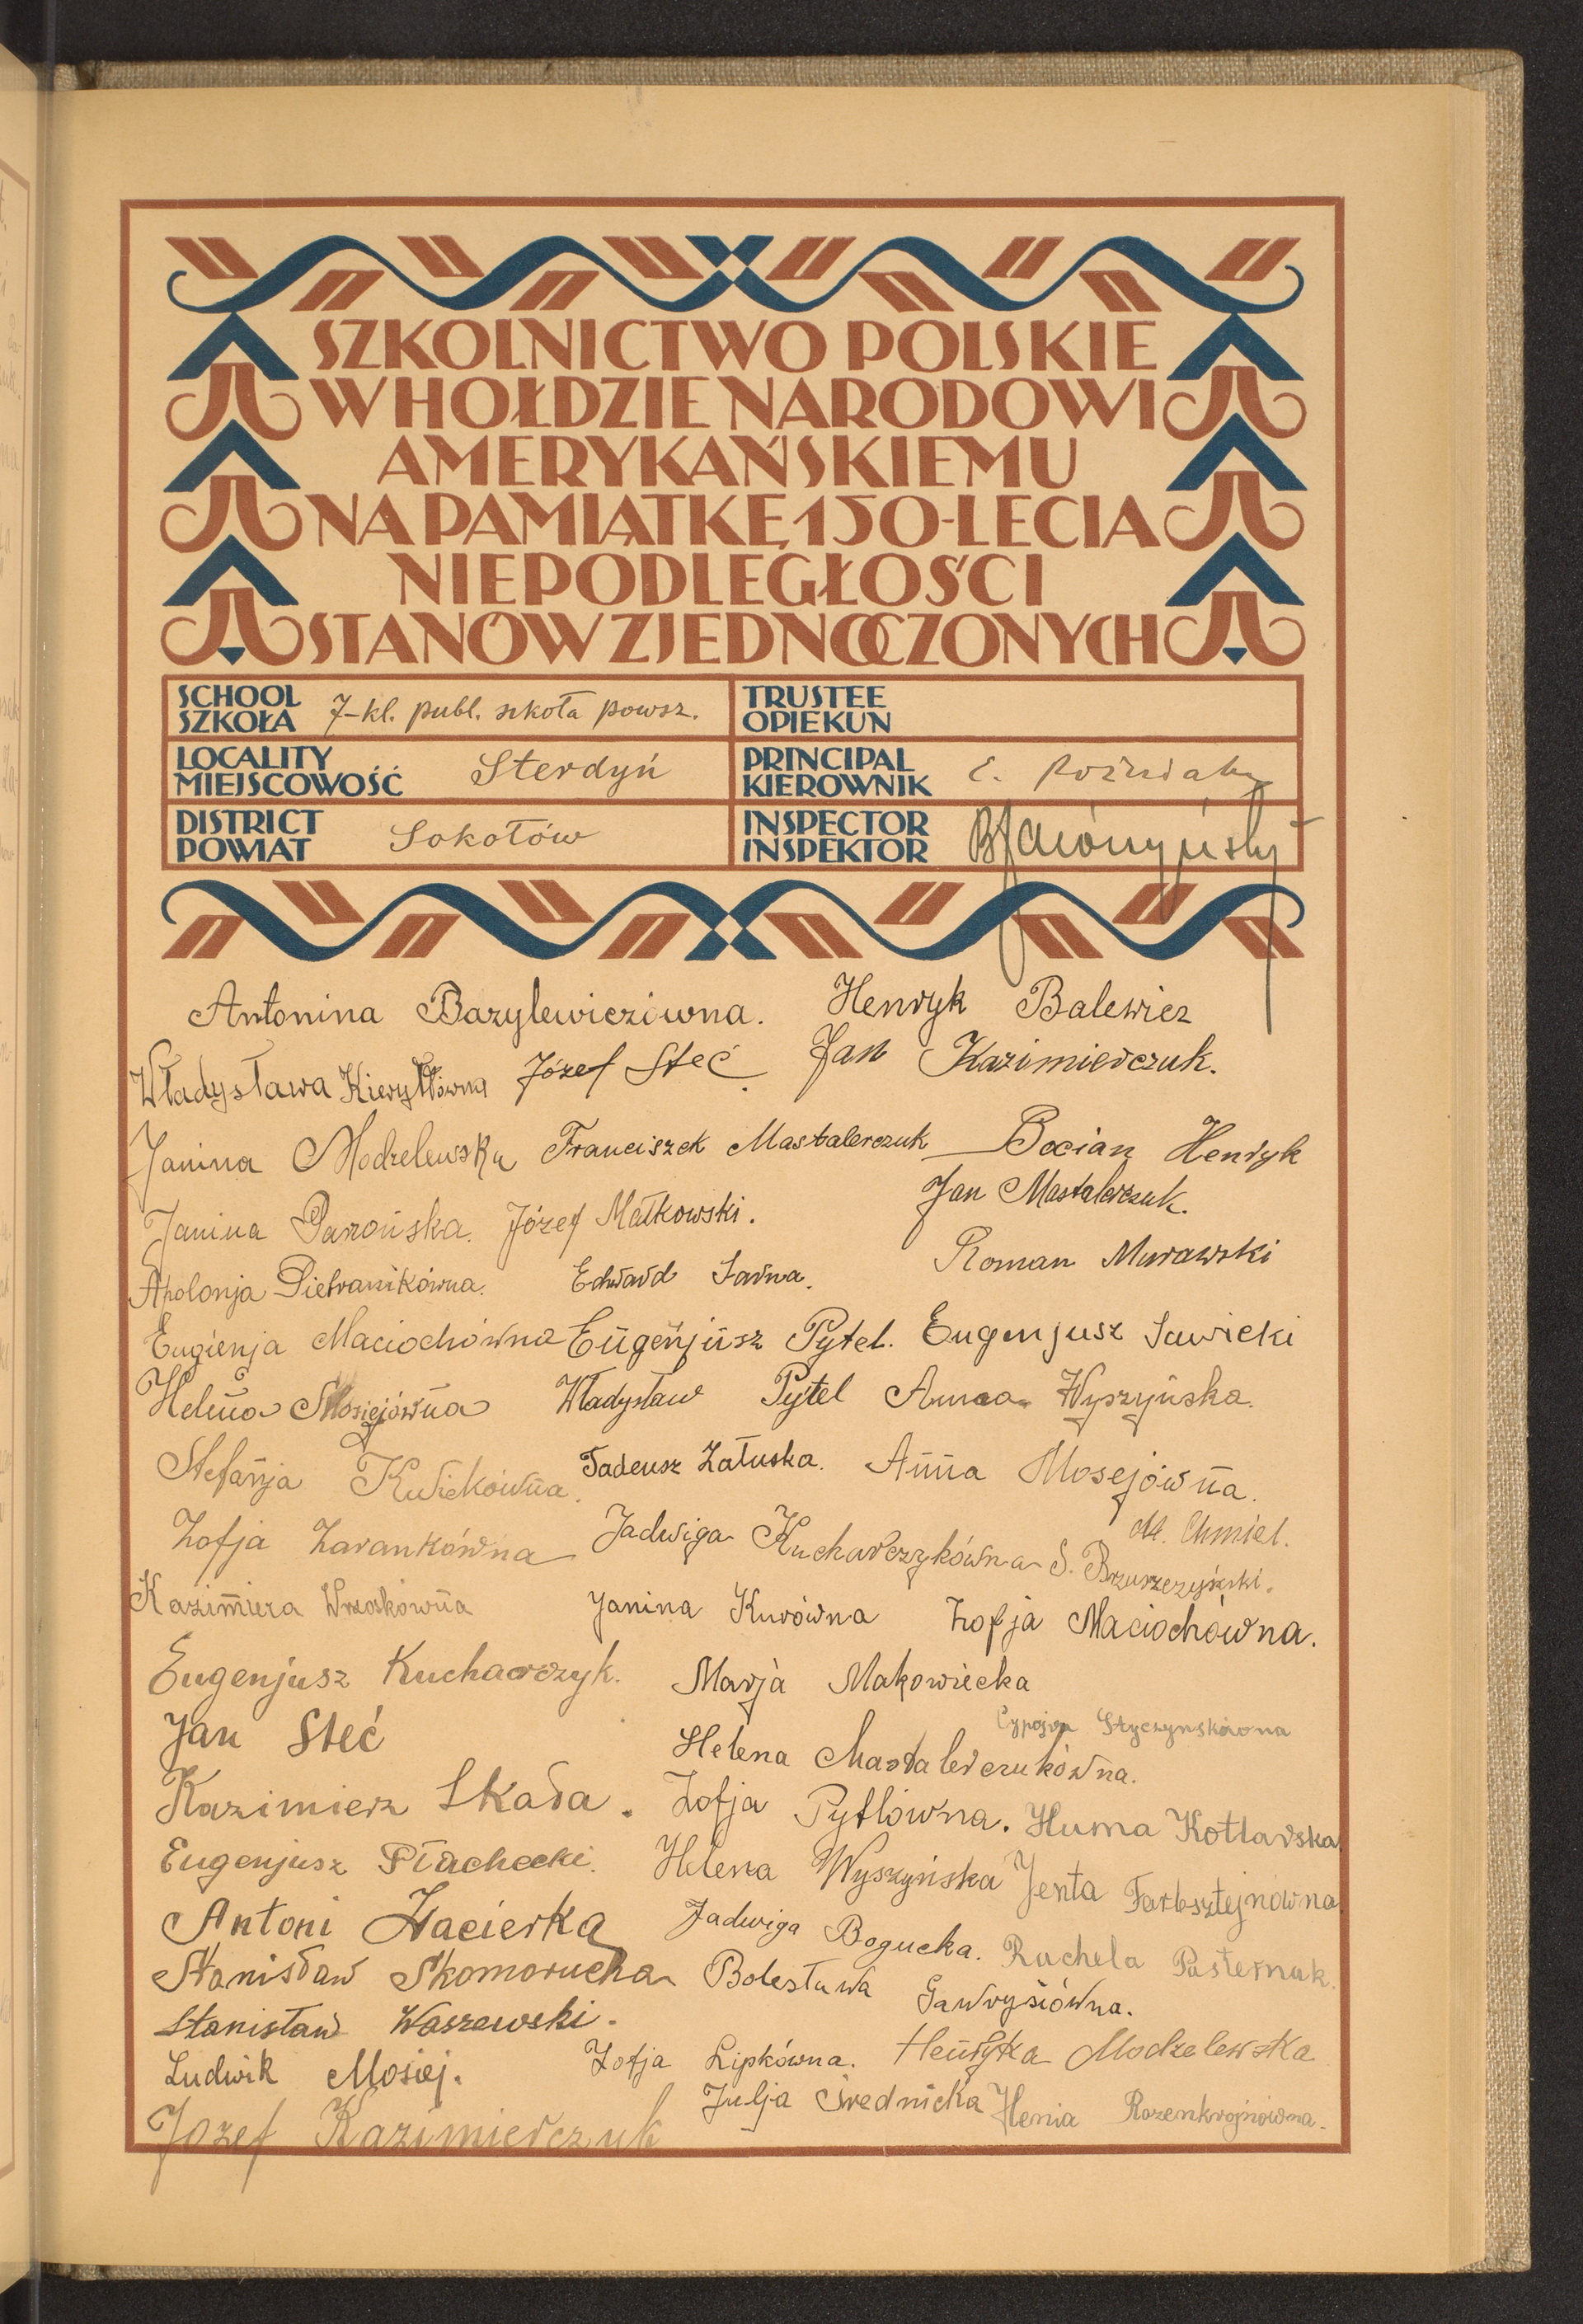 SZKOLNICTWO POLSKIE
W HOŁDZIE NARODOWI
AMERYKAŃSKIEMU
NA PAMIĄTKĘ 150-LECIA
NIEPODLEGŁOŚCI
STANÓW ZJEDNOCZONYCH
SCHOOL
SZKOŁA 7-kl. publ. szkoła powsz.
TRUSTEE
OPIEKUN
LOCALITY
MIEJSCOWOŚĆ Sterdyń
PRINCIPAL
KIEROWNIK
DISTRICT
POWIAT Sokołów
INSPECTOR
INSPEKTOR
Antonina Bazylewicziwna. Henryk Balewicz
Władysława Kieryłłówna Józef Steć. Jan Kazimierczuk.
Janina Modzelewska Franciszek Mastalerczuk Bocian Henryk
Janina Parońska. Józef Małkowski. Jan Mastalerczuk.
Apolonja Pietranikówna. Edward Sarna. Roman Murawski
Eugienja Maciochówna Eugenjusz Pytel. Eugenjusz Sawicki
Helena Mosiejówna Władysław Pytel Anna Wyszyńska.
Stefanja Tadeusz Załuska. Anna Mosejówna.
Zofja Zarankówna Jadwiga Kucharczykówna M. Chmiel.
S. Brzuszczyński.
Kazimiera Wrzoskówna Janina Kurówna Zofja Maciochówna.
Eugenjusz Kucharczyk. Marja Makowiecka
Jan Steć Helena Mastalerczukówna. Styczynskówna
Kazimierz Skała. Zofja Pytlówna. Huma Kotlarska
Eugenjusz Płachecki. Helena Wyszyńska Jenta Farbsztejnówna.
Antoni Zacierka Jadwiga Bogucka. Rachela Pasternak.
Stanisław Skomorucha Bolesława Gawrysiówna.
Stanisław Waszewski.
Ludwik Mosiej. Zofja Lipkówna. Henryka Modzelewska
Julja Średnicka Henia Rozenkrojnówna.
Jozef Kazimierczuk